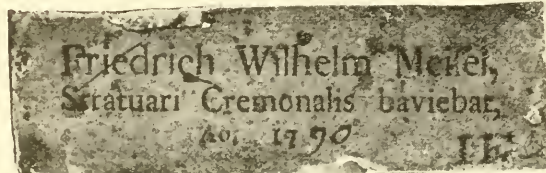 Friedrich Wilhelm Meiſel,
Stratuari Cremonalis baviebat,
Ao. 1790